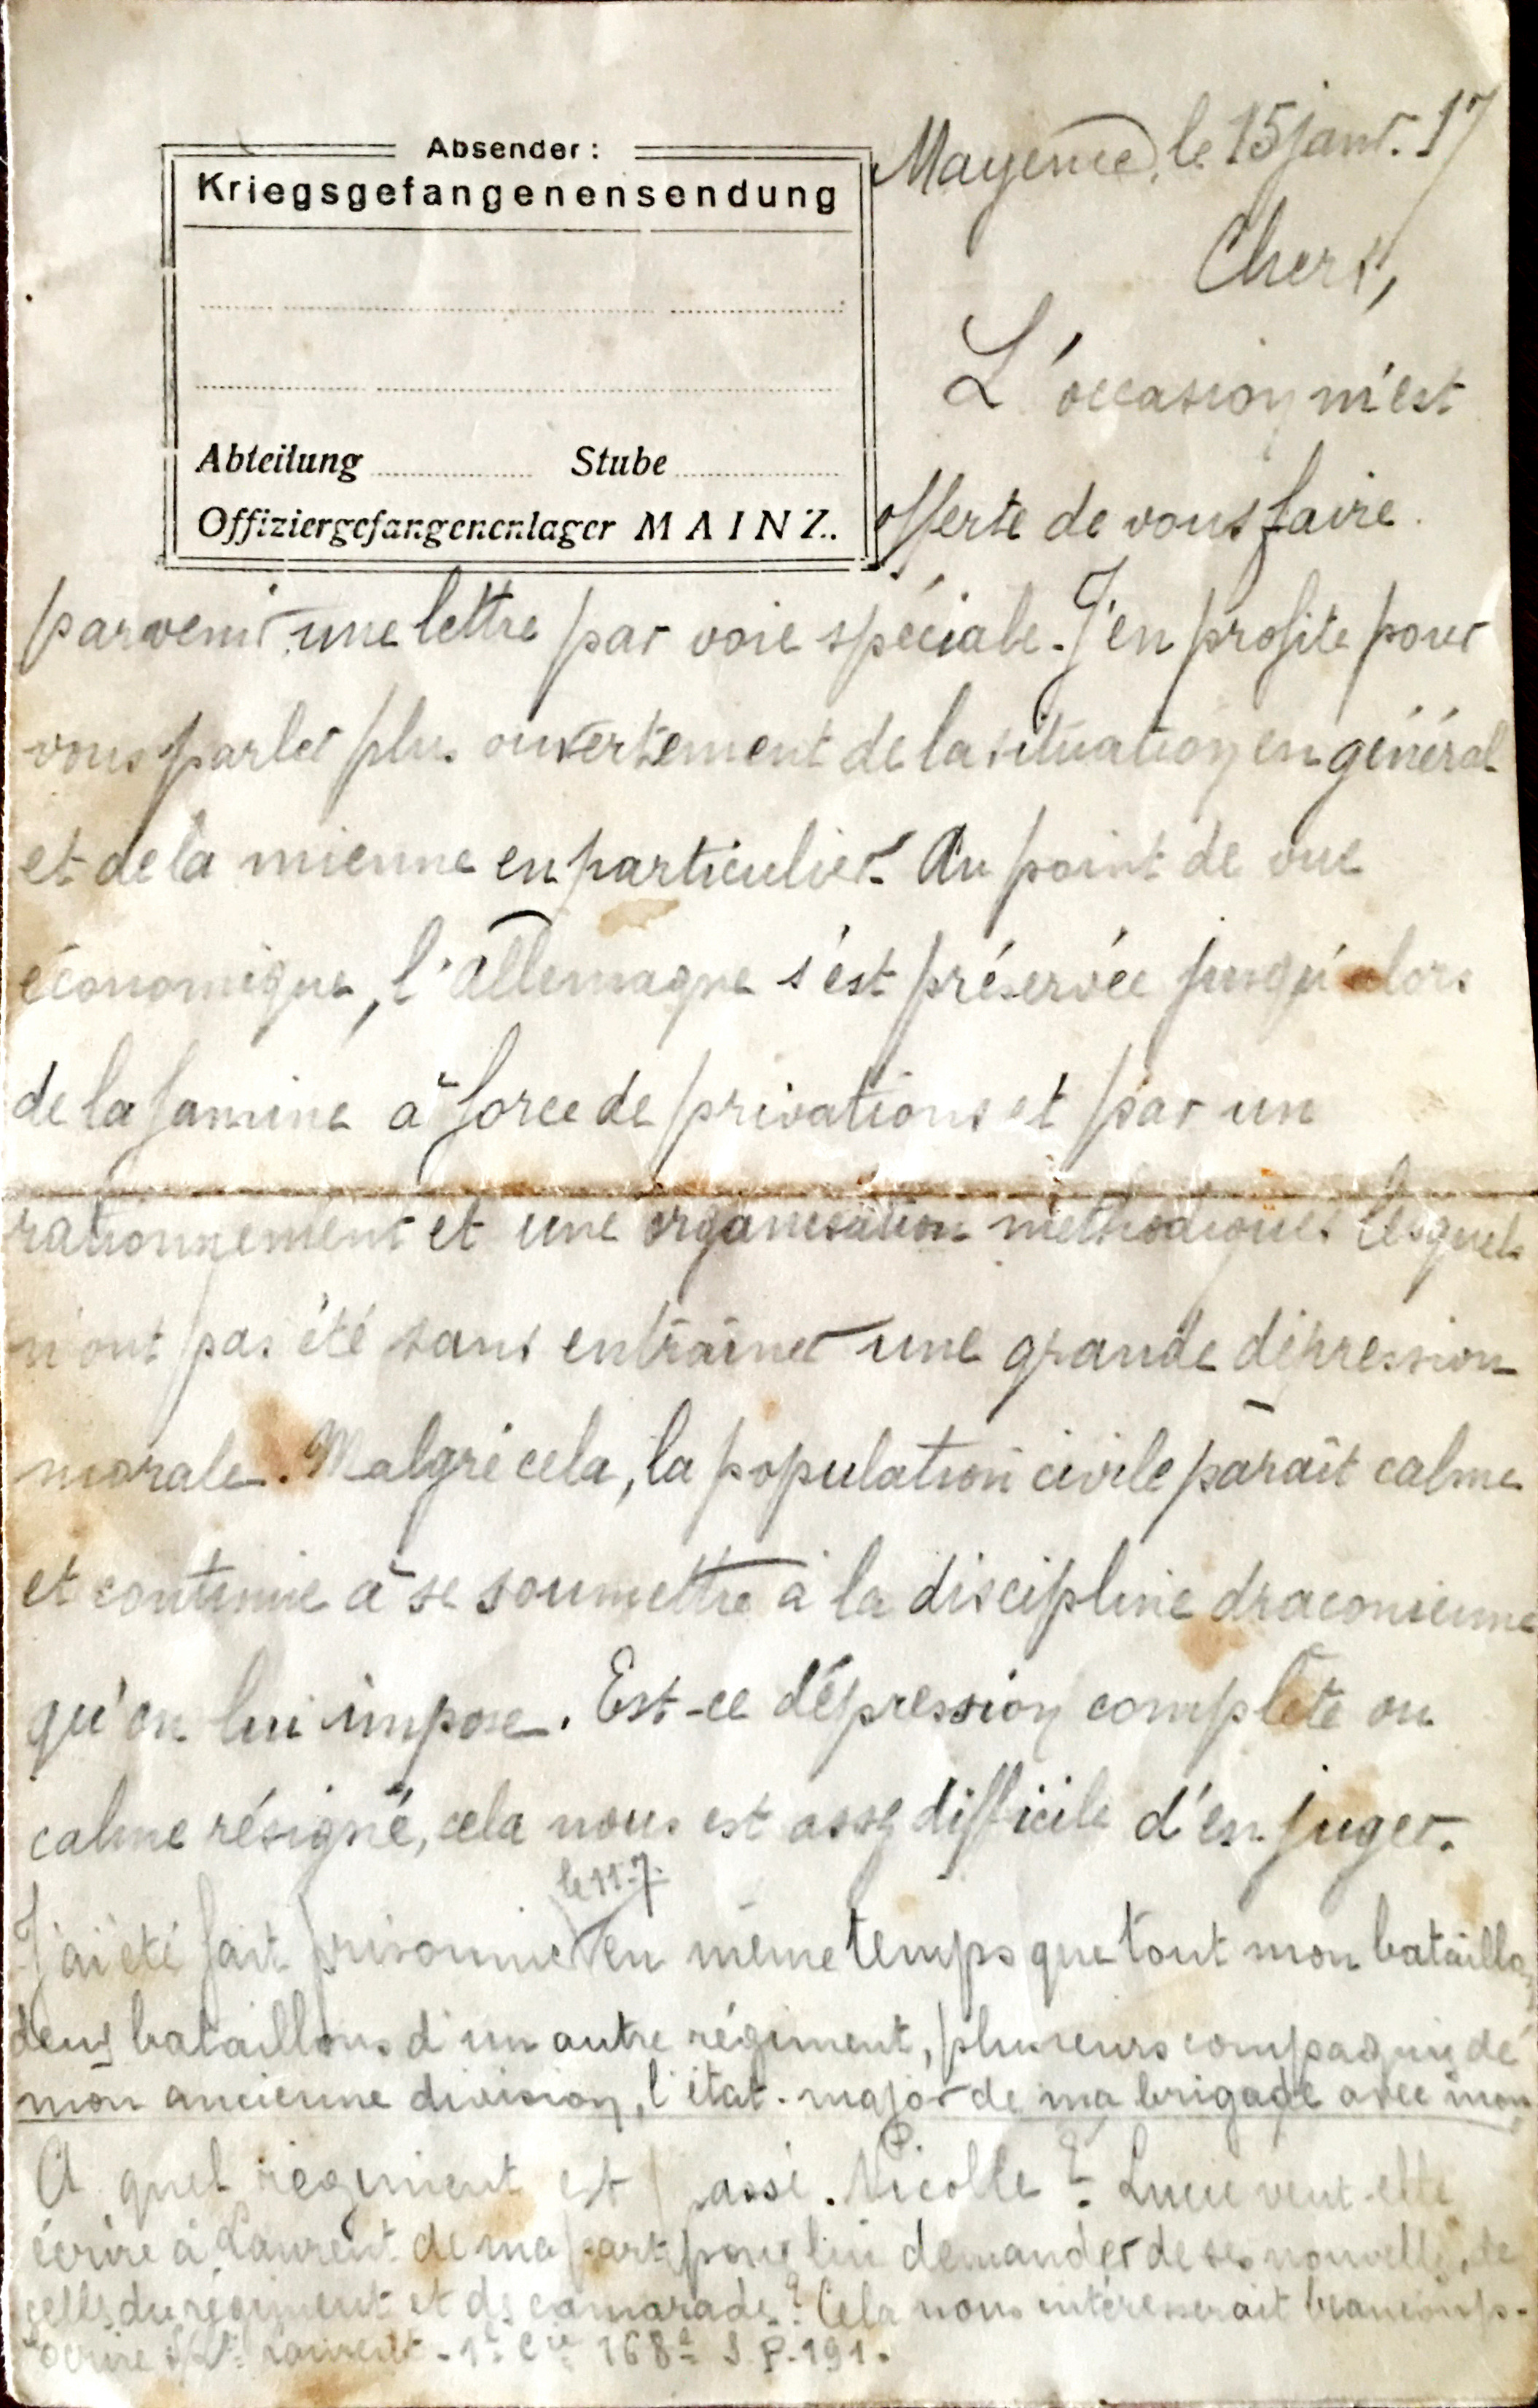 Absender:
Kriegsgefangenensendung
Abteilung Stube
Offiziergefangenenlager MAINZ.
Mayence, le 15 janv. 17
Chers,
L'occasion m'est
offerte de vous faire
parvenir une lettre par voie spéciale. J'en profite pour
vous parler plus ouvertement de la situation en général
et de la mienne en particulier. Au point de vue
économique, l'Allemagne s'est préservée jusqu'alors
de la famine à force de privations et par un
rationnement et une organisation méthodiques lesquels
n'ont pas été sans entraîner une grande dépression
morale. Malgré cela, la population civile paraît calme
et continue à se soumettre à la discipline draconienne
qu'on lui impose. Est-ce dépression complète ou
calme résigné, cela nous est assez difficile d'en juger.
le 11.7.
J'ai été fait prisonnier en même temps que tout mon bataillon
deux bataillons d'un autre régiment, plusieurs compagnies de
mon ancienne division, l'état-major de ma brigade avec mon
A quel régiment est passé P. Nicolle ? Lucie veut-elle
écrire à Laurent de ma part pour lui demander de ses nouvelles, de
celles du régiment et des camarades ? Cela nous intéresserait beaucoup.
écrire Laurent - 1e Cie 168e S.P. 191.